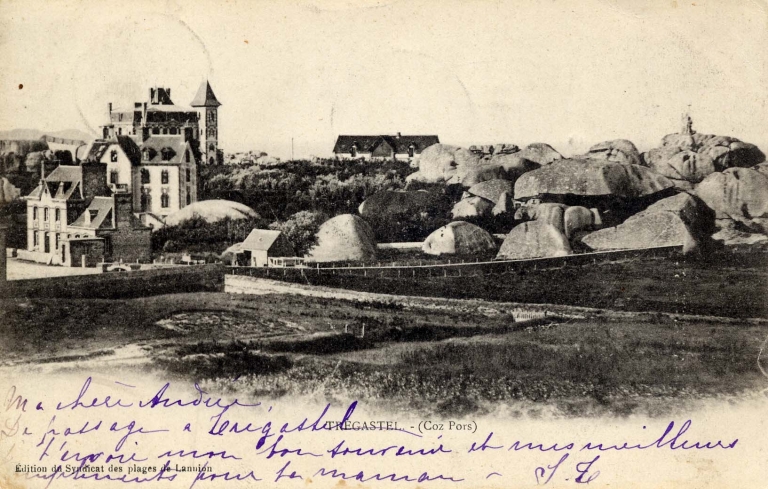 Ma chère Andrée
TRÉGASTEL. - (Coz Pors)
De passage a Trégastel,
t'envoie mon bon souvenir et mes meilleurs
Edition du Syndicat des plages de Lannion
compliments pour ta maman -